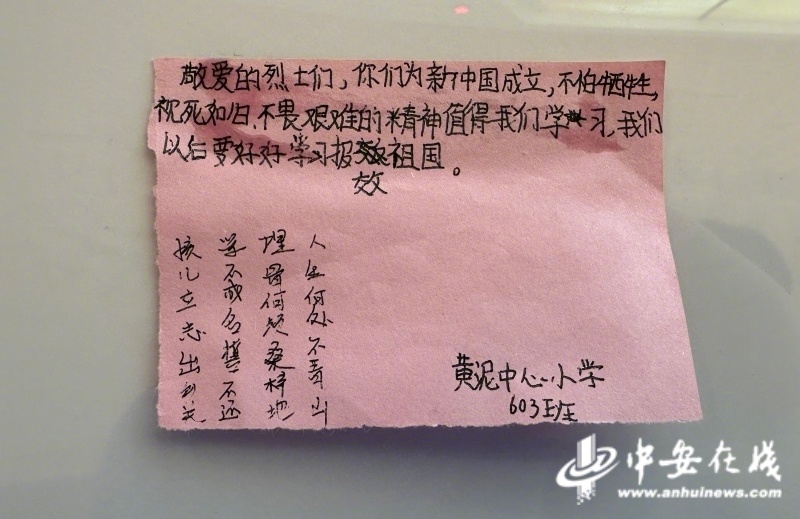 敬爱的烈士们，你们为新中国成立，不怕牺牲，
视死如归、不畏艰难的精神值得我们学习，我们
以后要好好学习报祖国。
效
孩儿立志出乡关
学不成名誓不还
埋骨何须桑梓地
人生何处不青山
黄泥中心小学
603班
中安在线
www.anhuinews.com